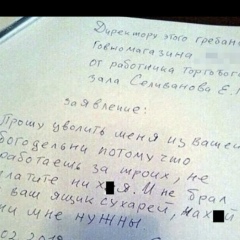 Директору этого гребан
Говномагазина
от работника торгового
зала Селиванова Е.
заявление:
Прошу уволить меня из вашей
богодельни потому что
работаешь за троих, не
платите ни х я. И не брал
я ваш ящик сухарей, нах й
они мне нужны